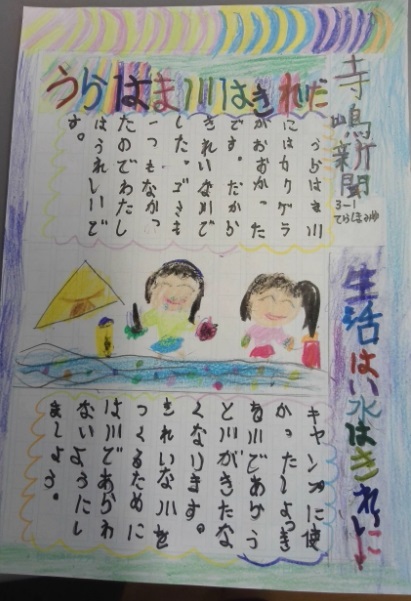 うらはま川はきれだ
寺嶋新聞
3-1
うらはま川
にはカワゲラ
がおおかった
です。だから
きれいな川で
した。ゴミも
一つもなかっ
たのでわたし
はうれしいで
す。
生活はい水はきれいに
キャンプに使
かったしょっき
を川であらう
と川がきたな
くなります。
きれいな川を
つくるために
は川であらわ
ないようにし
ましょう。